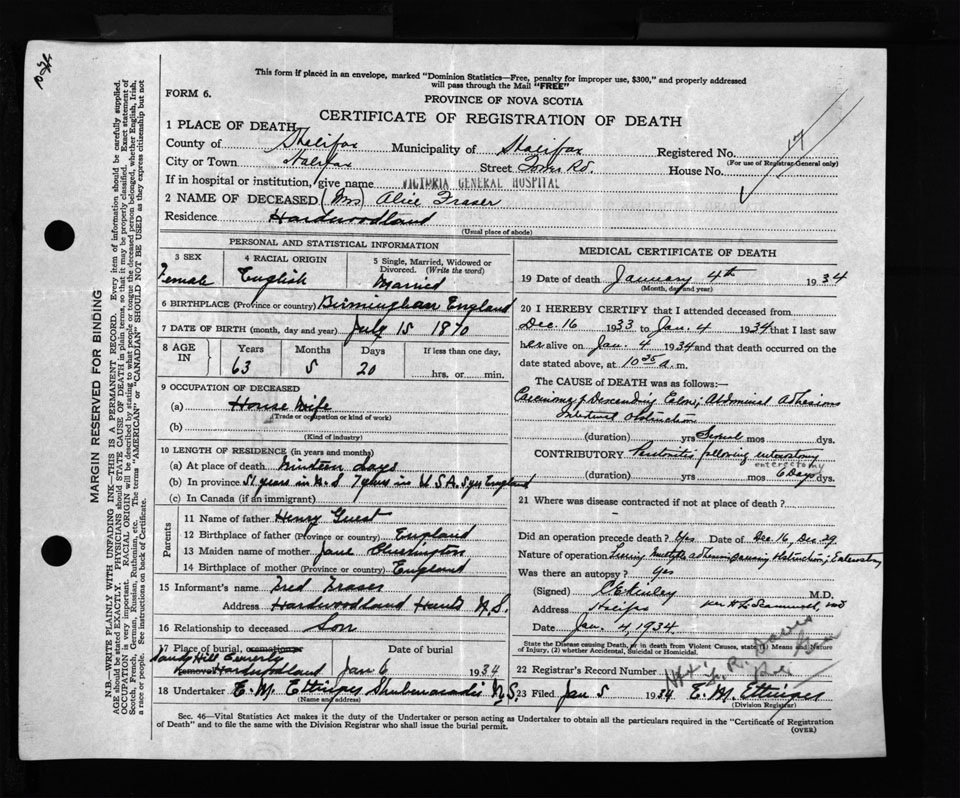 This form if placed in an envelope, marked "Dominion Statistics—Free, penalty for improper use, $300," and properly addressed
will pass through the Mail "FREE"
FORM 6.
PROVINCE OF NOVA SCOTIA
CERTIFICATE OF REGISTRATION OF DEATH
1 PLACE OF DEATH
County of Halifax Municipality of Halifax Registered No. 17
(For use of Registrar General only)
City or Town Halifax Street Tower Rd. House No.
If in hospital or institution, give name VICTORIA GENERAL HOSPITAL
2 NAME OF DECEASED (Mrs) Alice Fraser
Residence Hardwoodland
(Usual place of abode)
PERSONAL AND STATISTICAL INFORMATION
3 SEX 4 RACIAL ORIGIN 5 Single, Married, Widowed or Divorced. (Write the word)
Female English Married
6 BIRTHPLACE (Province or country) Birmingham England
7 DATE OF BIRTH (month, day and year) July 15 1870
8 AGE IN Years Months Days If less than one day,
63 5 20 hrs. or min.
9 OCCUPATION OF DECEASED
(a) House Wife
(Trade or occupation or kind of work)
(b)
(Kind of industry)
10 LENGTH OF RESIDENCE (in years and months)
(a) At place of death Ninteen days
(b) In province 51 years in N.S 7 years in U.S.A. 5 yrs England
(c) In Canada (if an immigrant)
Parents
11 Name of father Henry Guest
12 Birthplace of father (Province or country) England
13 Maiden name of mother Jane
14 Birthplace of mother (Province or country) England
15 Informant's name Fred Fraser
Address Hardwoodland Hants N.S.
16 Relationship to deceased Son
17 Place of burial, cremation or Date of burial
Sandy Hill Cemetery
Removal Hardwoodland Jan 6 1934
18 Undertaker E. M. Ettinger Shubenacadie N.S.
(Name and address)
MEDICAL CERTIFICATE OF DEATH
19 Date of death January 4th 1934
(Month, day and year)
20 I HEREBY CERTIFY that I attended deceased from
Dec. 16 1933 to Jan. 4 1934 that I last saw
her alive on Jan. 4 1934 and that death occurred on the
date stated above, at 10 35 a. m.
The CAUSE of DEATH was as follows:—
Carcinoma of Descending Colon; Abdominal Adhesions
Intestinal obstruction
(duration) yrs Several mos. dys.
CONTRIBUTORY Peritonitis following enterostomy
enterectomy
(duration) yrs 6 Days dys.
21 Where was disease contracted if not at place of death?
Did an operation precede death? Yes Date of Dec. 16, Dec. 29
Nature of operation Freeing Adhesions causing Obstruction; Enterostomy
Was there an autopsy? Yes
(Signed) M.D.
Address Halifax
Date Jan. 4, 1934.
State the Disease causing Death, or in death from Violent Causes, state (1) Means and Nature of Injury, (2) whether Accidental, Suicidal or Homicidal.
22 Registrar's Record Number
23 Filed Jan 5 1934 E. M. Ettinger
(Division Registrar)
Sec. 46—Vital Statistics Act makes it the duty of the Undertaker or person acting as Undertaker to obtain all the particulars required in the "Certificate of Registration
of Death" and to file the same with the Division Registrar who shall issue the burial permit. (OVER)
MARGIN RESERVED FOR BINDING
N.B.—WRITE PLAINLY WITH UNFADING INK—THIS IS A PERMANENT RECORD. Every item of information should be carefully supplied.
AGE should be stated EXACTLY. PHYSICIANS should STATE CAUSE OF DEATH in plain terms, so that it may be properly classified. Exact statement of
OCCUPATION is very important. RACIAL ORIGIN will be described by stating to what people or tongue the deceased person belonged, whether English, Irish,
Scotch, French, German, Russian, Ruthenian, etc. The terms "AMERICAN" or "CANADIAN" SHOULD NOT BE USED as they express citizenship but not
a race or people. See instructions on back of Certificate.